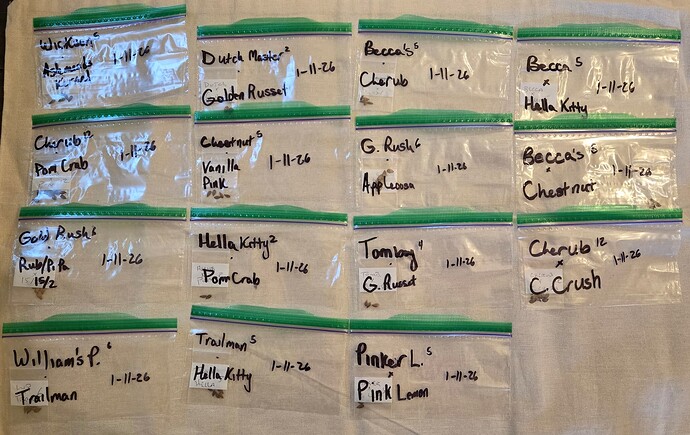 Wickson 5
1-11-26
Ashmead's
Kernel
Dutch Master 2
1-11-26
Golden Russet
Becca's 5
1-11-26
Cherub
Becca 5
x
1-11-26
Hella Kitty
Cherub 12
1-11-26
Pom Crab
Chestnut 5
1-11-26
Vanilla
Pink
G. Rush 6
1-11-26
Appaloosa
Becca's 5
x
1-11-26
Chestnut
Gold Rush 6
1-11-26
Rub/Pi.Pa
15/2
Hella Kitty 2
1-11-26
Pom Crab
4
1-11-26
G. Russet
Cherub 12
x
1-11-26
C. Crush
William's P. 6
1-11-26
Trailman
Trailman 5
1-11-26
Hella Kitty
Pinker L. 5
x
1-11-26
Pink Lemon